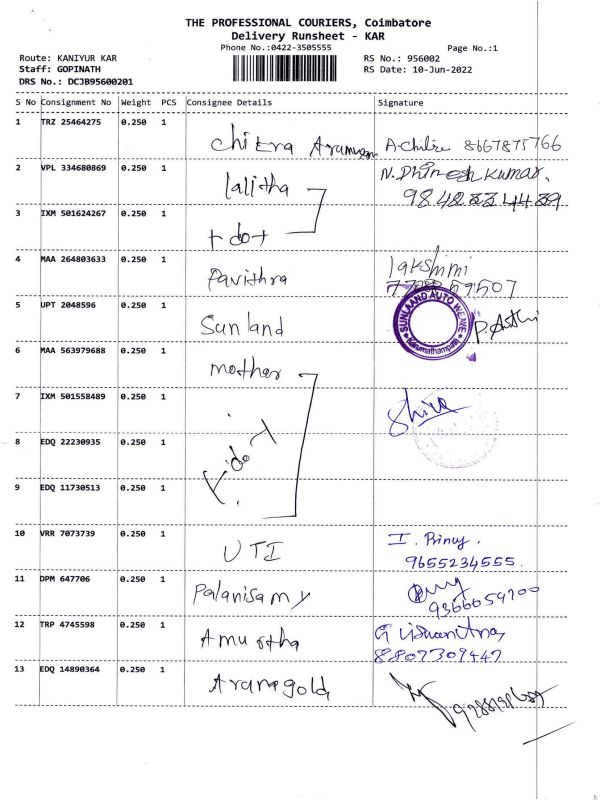 THE PROFESSIONAL COURIERS, Coimbatore
Delivery Runsheet - KAR
Phone No.:0422-3505555
Page No.:1
Route: KANIYUR KAR
RS No.: 956002
Staff: GOPINATH
RS Date: 10-Jun-2022
DRS No.: DCJB95600201
S No Consignment No Weight PCS Consignee Details Signature
1 TRZ 25464275 0.250 1 Chitra A.Chitra 8667875766
2 VPL 334680869 0.250 1 lalitha N.Dhinesh Kumar.
3 IXM 501624267 0.250 1 t dot
4 MAA 264803633 0.250 1 Pavithra lakshmi
5 UPT 2048596 0.250 1 Sunland SUNLAAND AUTO Karumathampatti
6 MAA 563979688 0.250 1 mother
7 IXM 501558489 0.250 1 Shiva
8 EDQ 22230935 0.250 1 t. dot
9 EDQ 11730513 0.250 1
10 VRR 7073739 0.250 1 UTI I. Prinuy.
9655234555.
11 DPM 647706 0.250 1 Palanisamy
9366054700
12 TRP 4745598 0.250 1 Amurtha G Viswanthan
8807307447
13 EDQ 14890364 0.250 1 Aranagold